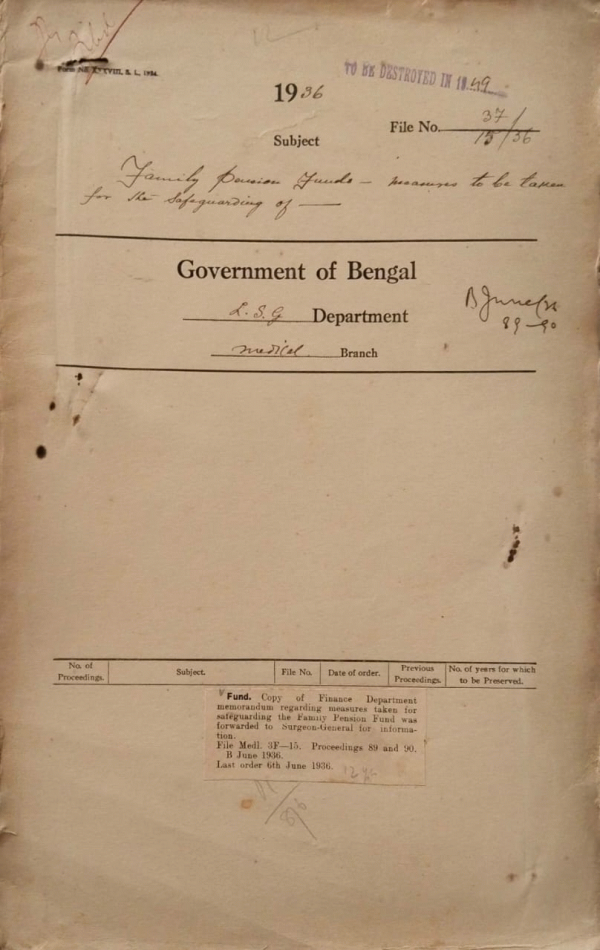 Form No. XXVIII, S. L., 1934.
TO BE DESTROYED IN 1949
1936
File No. 37/15/36
Subject
Family Pension Funds — measures to be taken
for the safeguarding of —
Government of Bengal
L. S. G Department
B June/36
89-90
medical Branch
No. of Proceedings. Subject. File No. Date of order. Previous Proceedings. No. of years for which to be Preserved.
Fund. Copy of Finance Department
memorandum regarding measures taken for
safeguarding the Family Pension Fund was
forwarded to Surgeon-General for informa-
tion.
File Medl. 3F—15. Proceedings 89 and 90.
B June 1936.
Last order 6th June 1936.